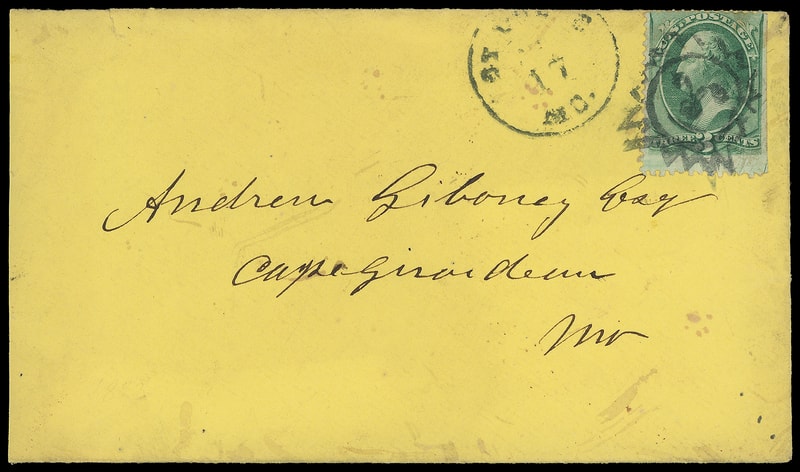 ST
17
MO.
U.S. POSTAGE
THREE 3 CENTS
Andrew Giboney Esq
Cape Girardeau
Mo